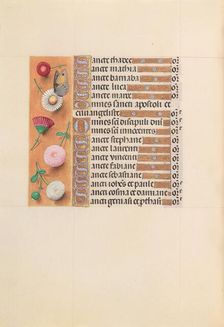 Sancte thadee or
Sancte mathia or
Sancte barnaba or
Sancte luca or
Sancte marce or
Omnes sancti apostoli et
euuangeliste or
Omnes sci discipuli dni or
Omnes sci innocentes or
Sancte stephane or
Sancte laurenti or
Sancte vincenti or
Sancte fabiane or
Sancte sebastiane or
Sancti iohes et paule or
Sancti cosma et damiane or
Sancti geruasi et pthasi or